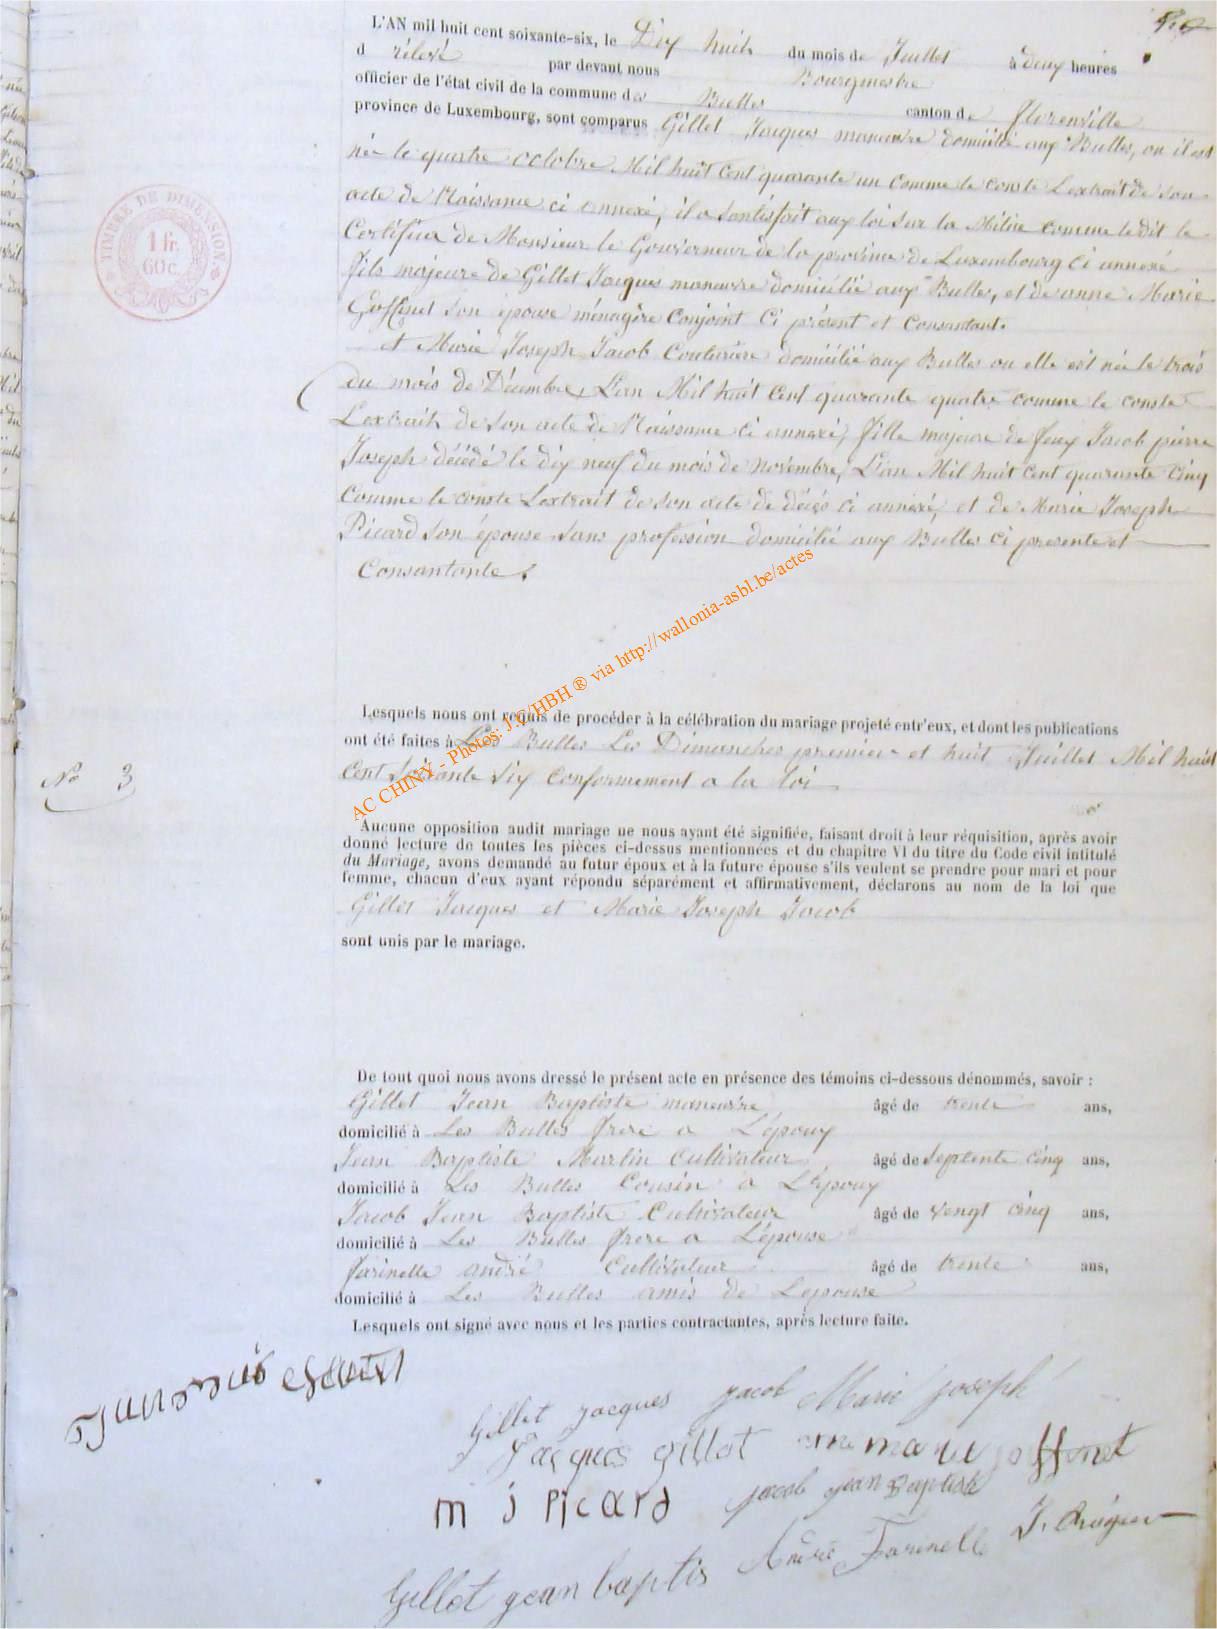 L'AN mil huit cent soixante-six, le Dix huit du mois de Juillet à deux heures
d rélevé par devant nous Bourgmestre
officier de l'état civil de la commune des Bulles canton de florenville
province de Luxembourg, sont comparus Gillet Jacques manœuvre domicilié aux Bulles, ou il est
née le quatre octobre Mil huit Cent quarante un comme le conste L'extrait de son
acte de Naissance ci annexé, il a santisfait aux loi sur la Milice comme le dit le
Certificat de Monsieur le Gouverneur de la province de Luxembourg Ci annexé
fils majeure de Gillet Jacques manœuvre domicilié aux Bulles, et de anne Marie
Goffinet Son épouse ménagère Conjoint Ci présent et Consantant.
et Marie Joseph Jacob Couturière domiciliée aux Bulles ou elle est née le trois
du mois de Décembre, L'an Mil huit Cent quarante quatre comme le conste
L'extrait de Son acte de Naissance Ci annexé, fille majeure de feux Jacob pierre
Joseph décédé le dix neuf du mois de novembre, L'an Mil huit cent quarante Cinq
Comme le conste L'extrait de son acte de décès ci annexé, et de Marie Joseph
Picard Son épouse Sans profession domicilié aux Bulles Ci presente et
Consantante.
Lesquels nous ont requis de procéder à la célébration du mariage projeté entr'eux, et dont les publications
ont été faites à Les Bulles Les Dimanches premier et huit Juillet Mil huit
Cent Soixante Six Conformement a la loi
No 3
Aucune opposition audit mariage ne nous ayant été signifiée, faisant droit à leur réquisition, après avoir
donné lecture de toutes les pièces ci-dessus mentionnées et du chapitre VI du titre du Code civil intitulé
du Mariage, avons demandé au futur époux et à la future épouse s'ils veulent se prendre pour mari et pour
femme, chacun d'eux ayant répondu séparément et affirmativement, déclarons au nom de la loi que
Gillet Jacques et Marie Joseph Jacob
sont unis par le mariage.
De tout quoi nous avons dressé le présent acte en présence des témoins ci-dessous dénommés, savoir :
Gillet Jean Baptiste manœuvre âgé de trente ans,
domicilié à Les Bulles frere a L'époux
Jean Baptiste Martin Cultivateur âgé de Septente Cinq ans,
domicilié à Les Bulles Cousin a L'époux
Jacob Jean Baptiste Cultivateur âgé de Vengt Cinq ans,
domicilié à Les Bulles frere a L'épouse
farinelle andré Cultivateur âgé de trente ans,
domicilié à Les Bulles amis de L'epouse
Lesquels ont signé avec nous et les parties contractantes, après lecture faite.
Gillet jacques jacob Marie joseph
Jacques gillet anne marie joffinet
m j Picard jacob jean Baptiste
Gillet jean baptis André Farinelle
TIMBRE DE DIMENSION
1 fr.
60 c.
AC CHINY - Photos: J.C/HBH ® via http://wallonia-asbl.be/actes